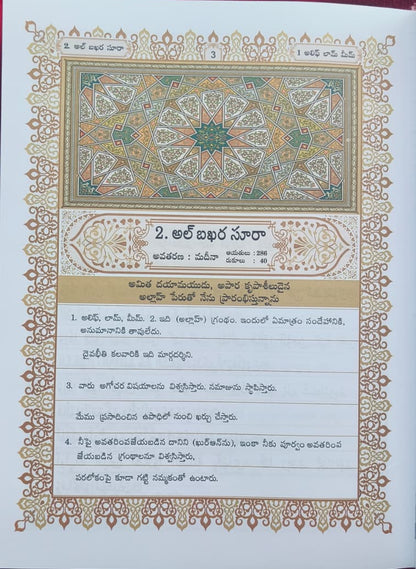 2. అల్ బఖర సూరా
3
1 అలిఫ్ లామ్ మీమ్
2. అల్ బఖర సూరా
అవతరణ : మదీనా
ఆయతులు : 286
రుకూలు : 40
అమిత దయామయుడు, అపార కృపాశీలుడైన
అల్లాహ్ పేరుతో నేను ప్రారంభిస్తున్నాను
1. అలిఫ్, లామ్, మీమ్. 2. ఇది (అల్లాహ్) గ్రంథం. ఇందులో ఏమాత్రం సందేహానికి,
అనుమానానికి తావులేదు.
దైవభీతి కలవారికి ఇది మార్గదర్శిని.
3. వారు అగోచర విషయాలను విశ్వసిస్తారు. నమాజును స్థాపిస్తారు.
మేము ప్రసాదించిన ఉపాధిలో నుంచి ఖర్చు చేస్తారు.
4. నీపై అవతరింపజేయబడిన దానిని (ఖుర్ఆన్‌ను), ఇంకా నీకు పూర్వం అవతరింప
జేయబడిన గ్రంథాలనూ విశ్వసిస్తారు,
పరలోకంపై కూడా గట్టి నమ్మకంతో ఉంటారు.